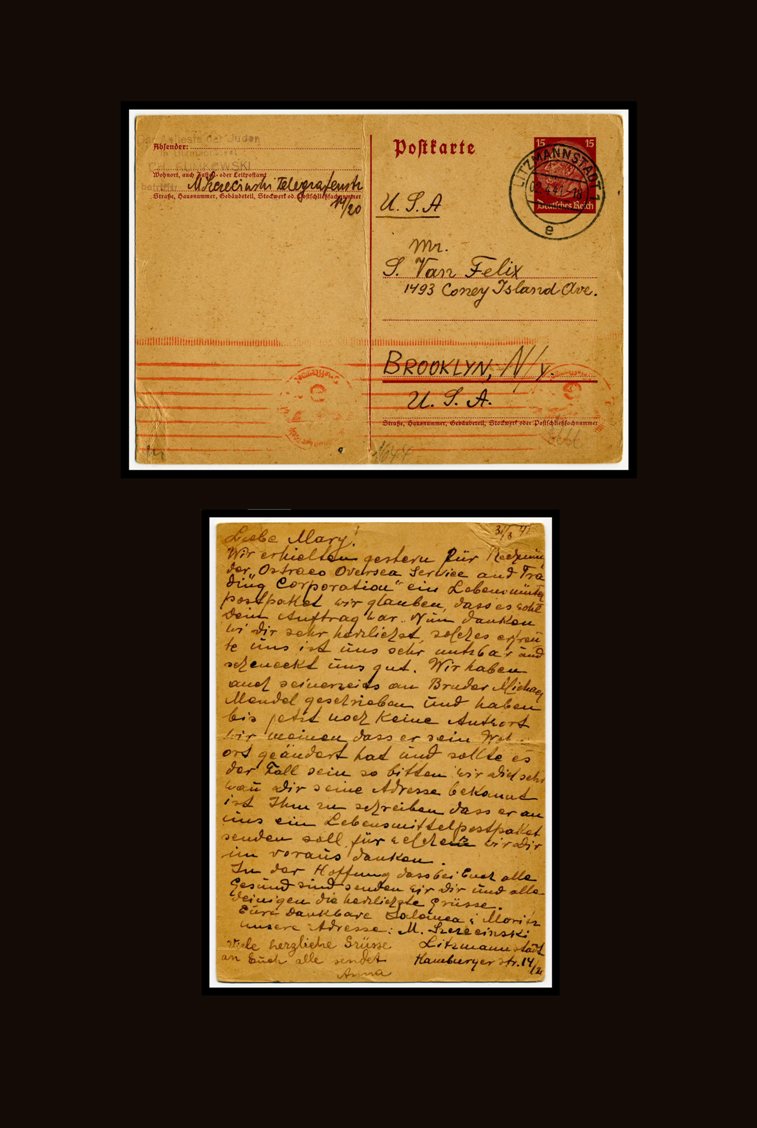 Der Älteste der Juden
CH. RUMKOWSKI
Absender:
Wohnort, auch Zustell- oder Leitpostamt
M. Szrecinski Telegrafenstr
14/20
Straße, Hausnummer, Gebäudeteil, Stockwerk od. Postschließfachnummer
Postkarte
15 15
Deutsches Reich
LITZMANNSTADT 1
e
U.S.A
Mr.
S. Van Felix
1493 Coney Island Ave.
BROOKLYN, N/y.
U. S. A.
Straße, Hausnummer, Gebäudeteil, Stockwerk oder Postschließfachnummer
Liebe Mary!
Wir erhielten gestern für Rechnung
der „Ostraco Oversea Service and Tra
ding Corporation" ein Lebensmittel
postpaket wir glauben, dass es wohl
Dein Auftrag war. Nun danken
wir Dir sehr herzlichst, solches erfreu
te uns, ist uns sehr nutzbar und
schmeckt uns gut. Wir haben
auch seinerzeits an Bruder
Mendel geschrieben und haben
bis jetzt noch keine Antwort
wir meinen dass er sein Woh
ort geändert hat und sollte es
der Fall sein so bitten wir Dich sehr
wan Dir seine Adresse bekannt
ist Ihm zu schreiben dass er an
uns ein Lebensmittelpostpaket
senden soll, für welchen wir Dir
im voraus danken.
In der Hoffnung dass bei Euch alle
Gesund sind senden wir Dir und alle
Deinigen die herzlichste Grüsse.
Eure dankbare Salomea u Moritz
unsere Adresse: M. Szrecinski
Viele herzliche Grüsse Litzmannstadt
an Euch alle sendet Hamburgerstr. 14/20
Anna